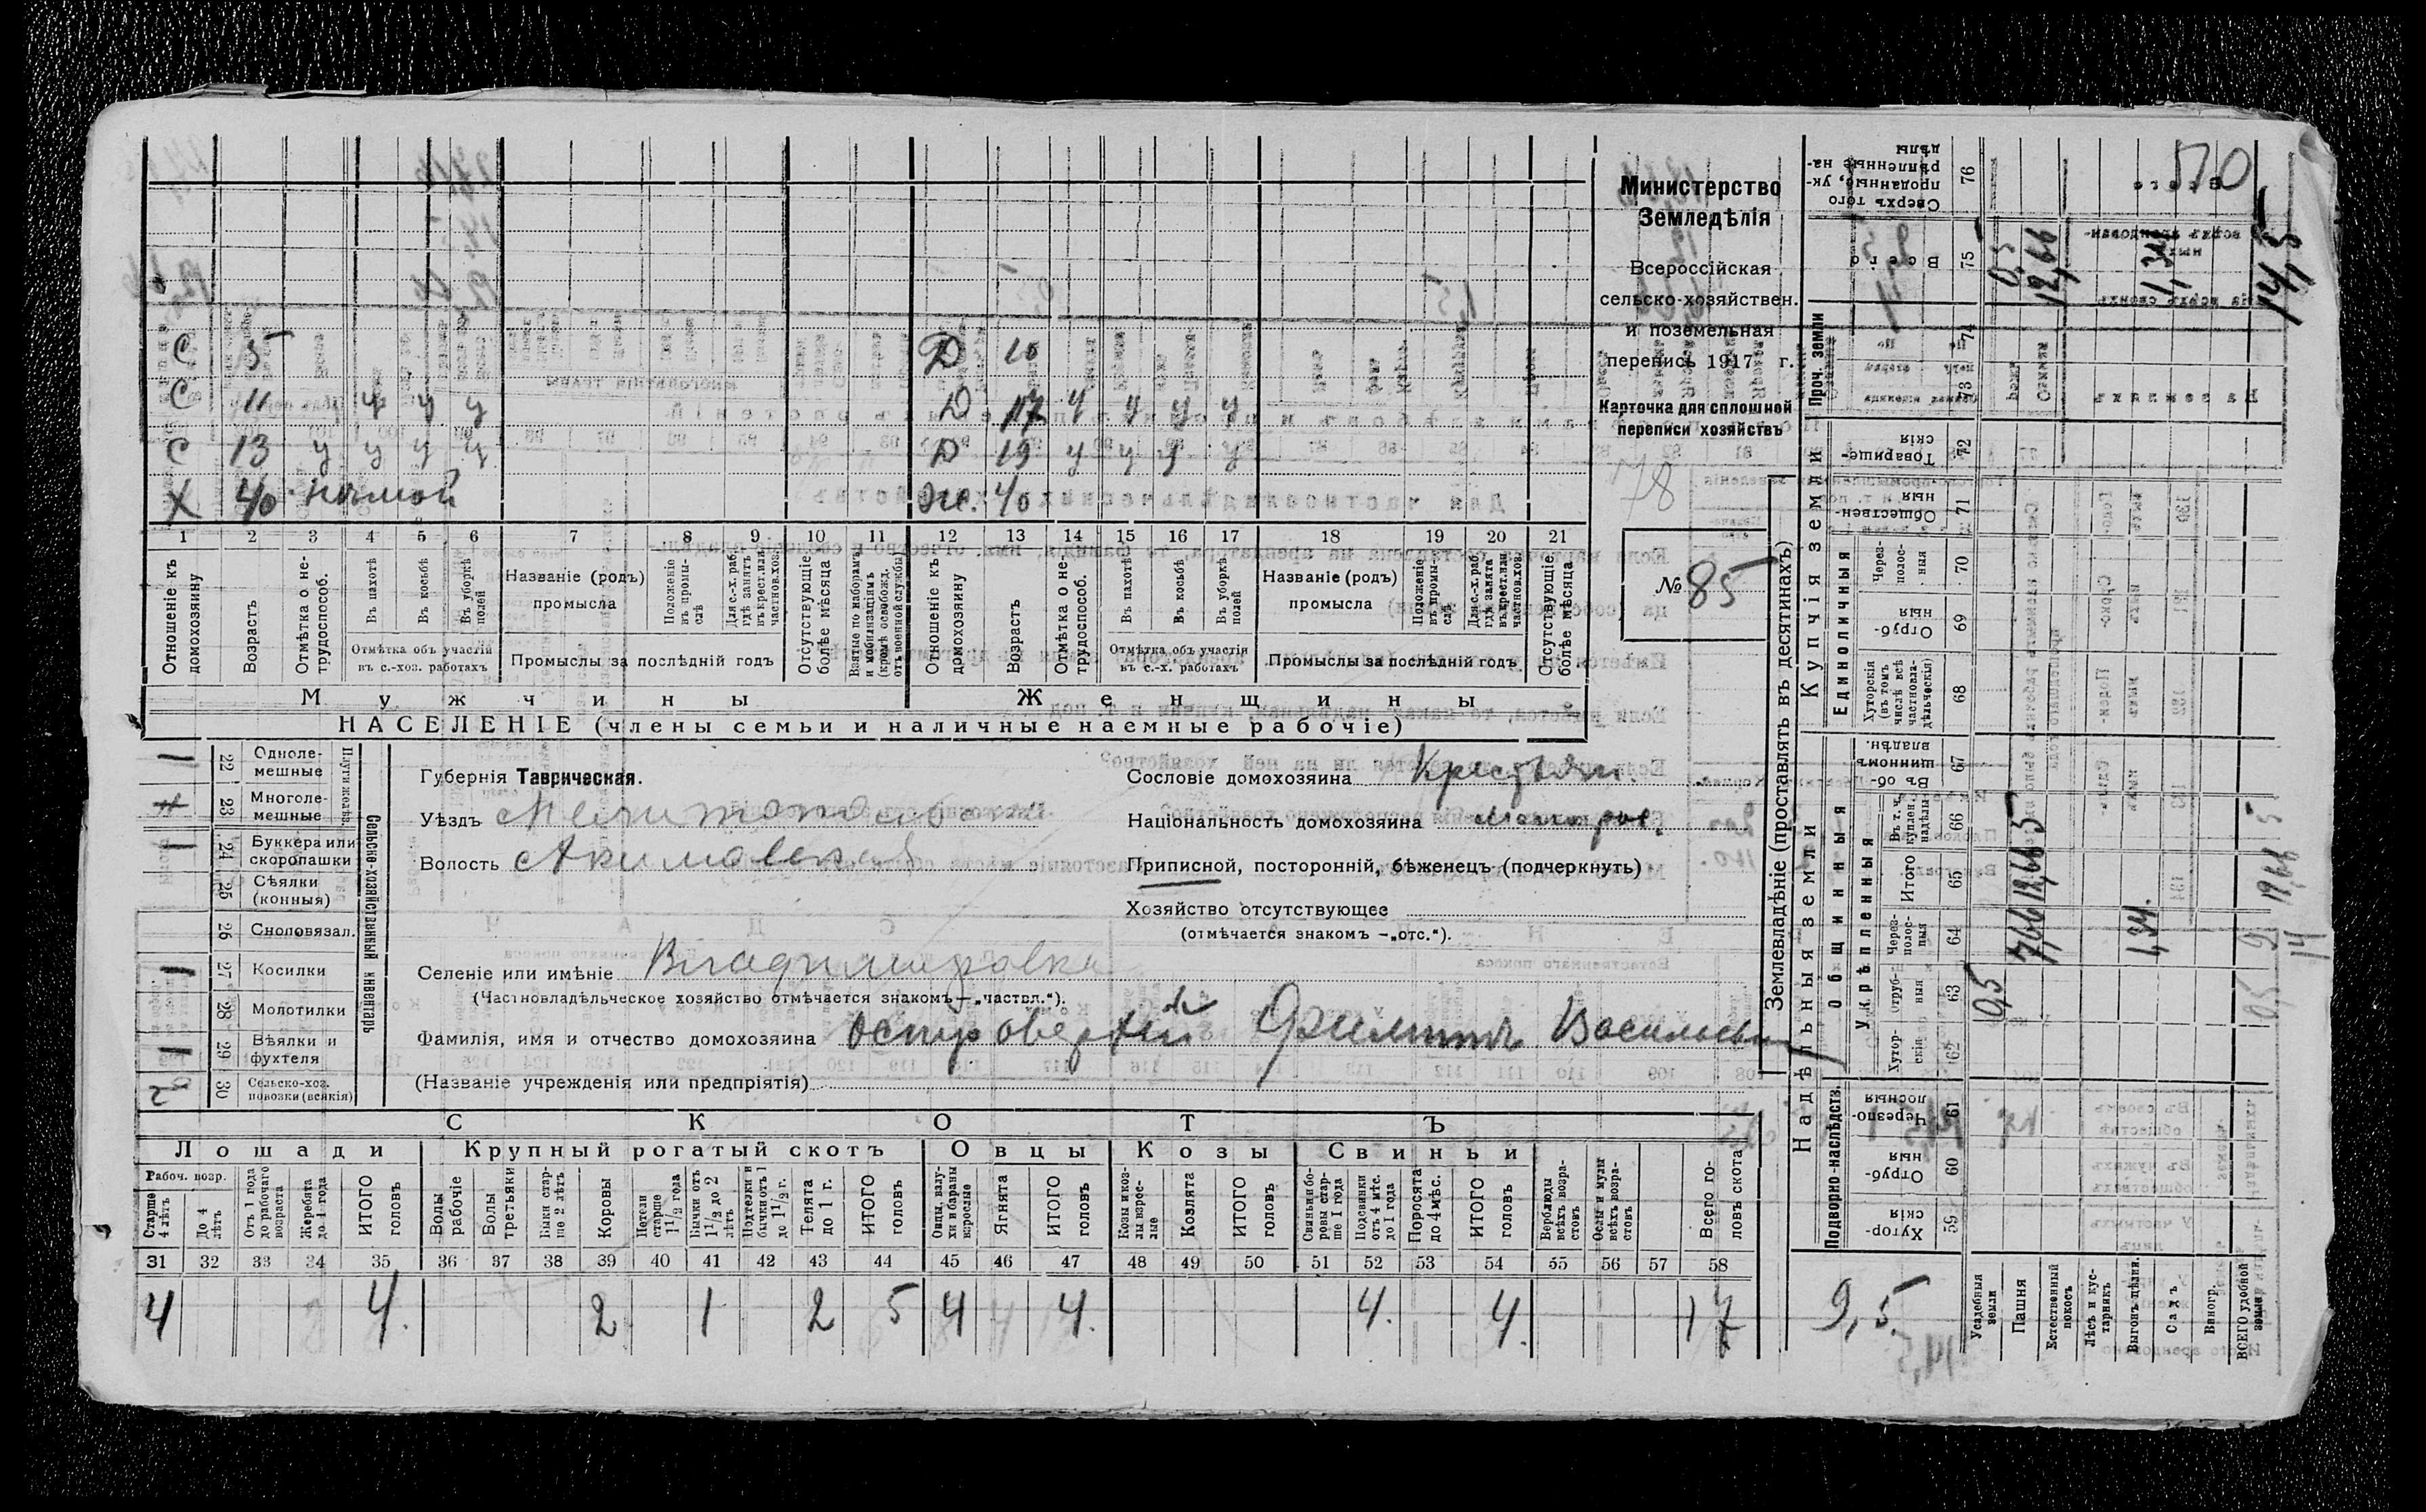 Министерство
Земледѣлія
Всероссійская
сельско-хозяйствен.
и поземельная
перепись 1917 г.
Карточка для сплошной
переписи хозяйствъ
78
№ 85
С 5 Д 10
С 11 у у у Д 17 у у у у
С 13 у у у у Д 19 у у у у
Х 40 нѣмой Ж. 40
1 2 3 4 5 6 7 8 9 10 11 12 13 14 15 16 17 18 19 20 21
Отношеніе къ домохозяину
Возрастъ
Отмѣтка о нетрудоспособ.
Въ пахотѣ
Въ косьбѣ
Въ уборкѣ полей
Отмѣтка объ участіи въ с.-хоз. работахъ
Названіе (родъ) промысла
Положеніе въ промыслѣ
Для с.-х. раб. гдѣ занятъ въ крест. или частнов. хоз.
Промыслы за послѣдній годъ
Отсутствующіе болѣе мѣсяца
Взятые по наборамъ и мобилизаціямъ (кромѣ освобожд. отъ военной службы)
Отношеніе къ домохозяину
Возрастъ
Отмѣтка о нетрудоспособ.
Въ пахотѣ
Въ косьбѣ
Въ уборкѣ полей
Отмѣтка объ участіи въ с.-х. работахъ
Названіе (родъ) промысла
Положеніе въ промыслѣ
Для с.-х. раб. гдѣ занята въ крест. или частнов. хоз.
Промыслы за послѣдній годъ
Отсутствующіе болѣе мѣсяца
Мужчины Женщины
НАСЕЛЕНІЕ (члены семьи и наличные наемные рабочіе)
Сельско-хозяйственный инвентарь
Плуги желѣз.
1 22 Одноле-мешные
23 Многоле-мешные
1 24 Буккера или скоропашки
25 Сѣялки (конныя)
26 Сноповязал.
1 27 Косилки
28 Молотилки
1 29 Вѣялки и фухтеля
2 30 Сельско-хоз. повозки (всякія)
Губернія Таврическая.
Уѣздъ Мелитопольскій
Волость Акимовская
Сословіе домохозяина Крестьян.
Національность домохозяина малорос.
Приписной, посторонній, бѣженецъ (подчеркнуть)
Хозяйство отсутствующее
(отмѣчается знакомъ —„отс.“).
Селеніе или имѣніе Владимировка
(Частновладѣльческое хозяйство отмѣчается знакомъ—„частвл.“).
Фамилія, имя и отчество домохозяина Островерхій Филиппъ Васильевич
(Названіе учрежденія или предпріятія)
СКОТЪ
Лошади Крупный рогатый скотъ Овцы Козы Свиньи
Рабоч. возр.
Старше 4 лѣтъ
До 4 лѣтъ
Отъ 1 года до рабочаго возраста
Жеребята до 1 года
ИТОГО головъ
Волы рабочіе
Волы третьяки
Быки старше 2 лѣтъ
Коровы
Нетели старше 1 1/2 года
Бычки отъ 1 1/2 до 2 лѣтъ
Подтелки и бычки отъ 1 до 1 1/2 г.
Телята до 1 г.
ИТОГО головъ
Овцы, валухи и бараны взрослые
Ягнята
ИТОГО головъ
Козы и козлы взрослые
Козлята
ИТОГО головъ
Свиньи и боровы старше 1 года
Подсвинки отъ 4 мѣс. до 1 года
Поросята до 4 мѣс.
ИТОГО головъ
Верблюды всѣхъ возрастовъ
Ослы и мулы всѣхъ возрастовъ
Всего головъ скота
31 32 33 34 35 36 37 38 39 40 41 42 43 44 45 46 47 48 49 50 51 52 53 54 55 56 57 58
4 4. 2 1 2 5 4 4. 4. 4. 17
Землевладѣніе (проставлять въ десятинахъ)
Надѣльныя земли
Купчія земли
Проч. земли
Подворно-наслѣдств.
Общинныя
Укрѣпленныя
Единоличныя
Хуторскія 59
Отрубныя 60
Черезполосныя 61
Хуторскія 62
Отрубныя 63
Черезполосныя 64
Итого 65
Въ т. ч. куплен. надѣлы 66
Въ общинномъ владѣн. 67
Хуторскія (въ томъ числѣ всѣ частновладѣльческія) 68
Отрубныя 69
Черезполосныя 70
Общественныя 71
Товарищескія 72
73
74
Всего 75
Сверхъ того проданные, укрѣпленные надѣлы 76
Усадебныя земли 0,5 0,5
Пашня 7,66 12,66 5 12,66
Естественный покосъ
Лѣсъ и кустарникъ
Выгонъ цѣлин. 1,34 1,34
Садъ
Виногр.
ВСЕГО удобной земли 14,5
9,5.